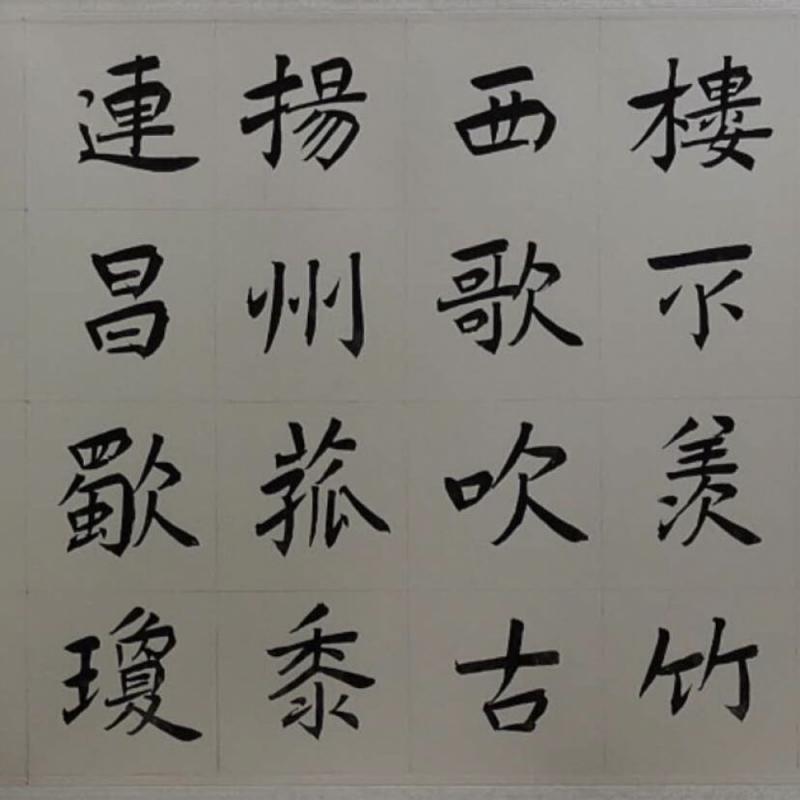 樓不羡竹
西歌吹古
揚州菰黍
連昌歜瓊